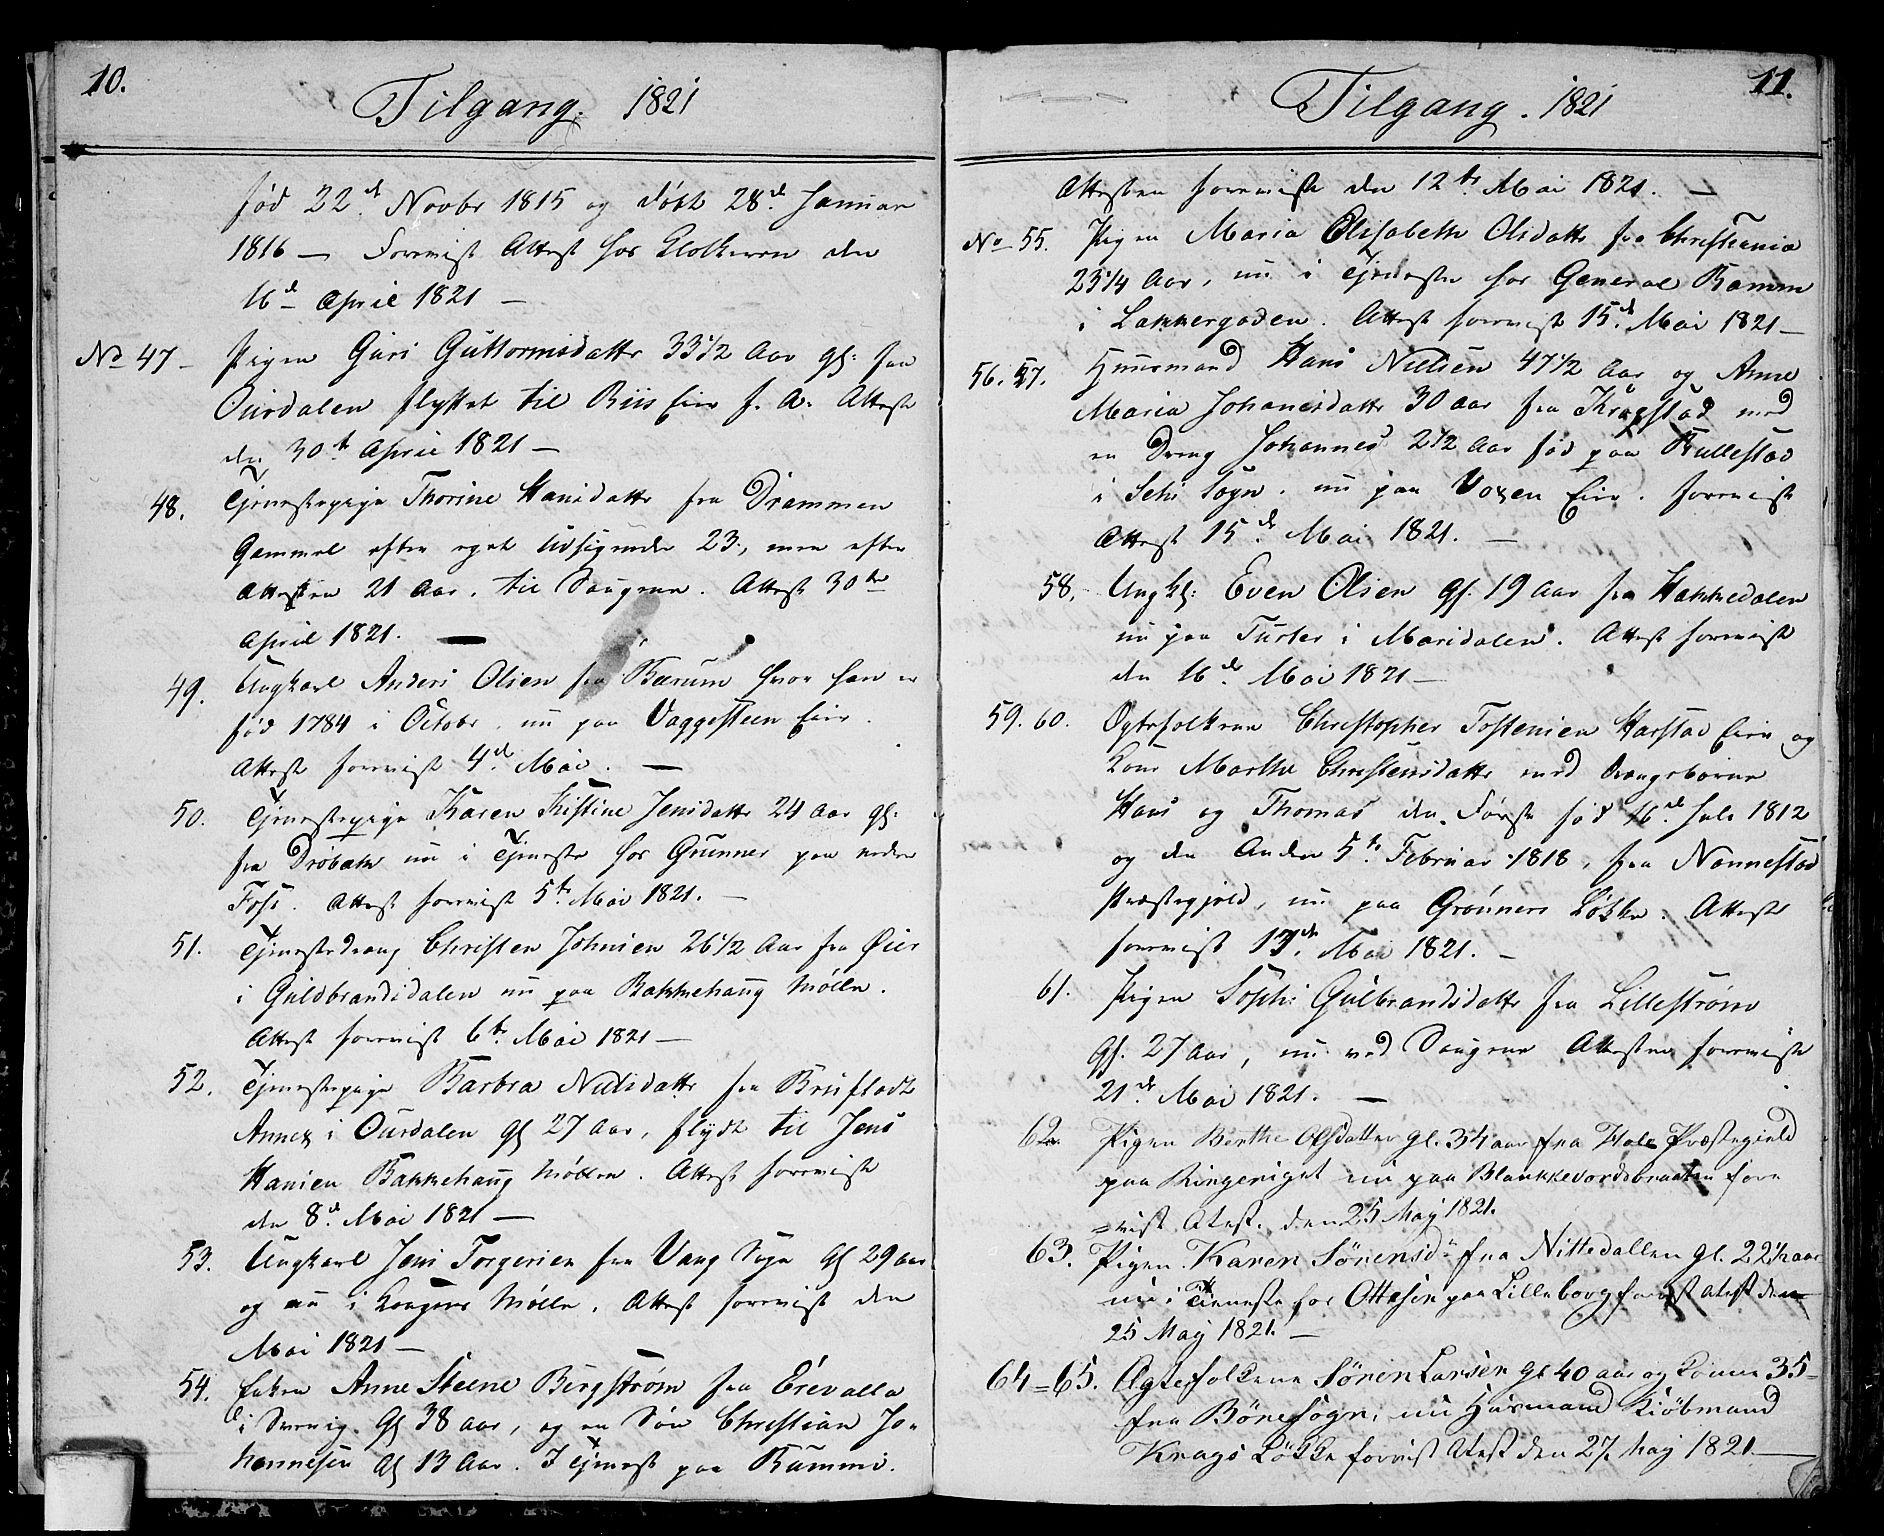 10.
Tilgang. 1821
fød 22de Novbr 1815 og døbt 28de Januar
1816 — Foreviist Attest hos Klokkeren den
16de April 1821 —
No 47 – Pigen Guri Guttormsdattr 33 1/2 Aar gl: fra
Ourdalen flyttet til Riis Eier f. A. Attest
den 30te April 1821 —
48. Tjenestepige Thorine Hansdattr fra Drammen
Gammel efter eget Udsigende 23, men efter
Attesten 21 Aar. til Saugene. Attest 30te
April 1821. —
49. Ungkarl Anders Olsen fra Bærum hvor han er
fød 1784 i Octobr. nu paa Vaggesteen Eier.
Attest foreviist 4de Mai. —
50. Tjenestepige Karen Kistine Jensdattr 24 Aar gl:
fra Drøbak nu i Tjeneste hos Gruner paa nedre
Foss. Attest foreviist 5te Mai 1821. —
51. Tjenestedreng Christen Johnsen 26 1/2 Aar fra Øier
i Guldbrandsdalen nu paa Bakkehaug Mølle.
Attest foreviist 6te Mai 1821 —
52. Tjenestepige Barbra Nielsdattr fra Brufladt
Annex i Ourdalen gl 27 Aar, flydt til Jens
Hansen Bakkehaug Møllen. Attest foreviist
den 8de Mai 1821 —
53. Ungkarl Jens Torgersen fra Vang Sogn gl 29 aar
og nu i Kongens Mølle. Attest foreviist den
Mai 1821 —
54. Enken Anne Steene Bergstrøm fra Erevalla
i Sverrig. gl 38 aar, og en Søn Christian Jo-
hannesen gl 13 Aar. I Tjenest paa
11.
Tilgang. 1821
Attesten foreviist den 12te Mai 1821. —
No 55. Pigen Maria Elisabeth Olsdattr fra Christiania
23 1/4 Aar, nu i Tjeneste hos General Ramm
i Lakkegaden. Attest foreviist 15de Mai 1821 —
56. 57. Huusmand Hans Nielsen 47 1/2 Aar og Anne
Maria Johanesdattr 30 aar fra Krogstad med
en Dreng Johannes 2 1/2 Aar fød paa Kullestad
i Schi Sogn. nu paa Voxen Eier. foreviist
Attest 15de Mai 1821. —
58. Ungkl: Even Olsen gl. 19 aar fra Hakkedalen
nu paa Turter i Maridalen. Attest foreviist
den 16de Mai 1821 —
59. 60. Ægtefolkene Christopher Tostensen Harstad Eier og
Kone Marthe Christensdattr med Drengebørne
Hans og Thomas den Første fød 16de Juli 1812
og den Anden 5te Februar 1818, fra Nannestad
Præstegjeld, nu paa Grøuners Løkke. Attest
foreviist 17de Mai 1821. —
61. Pigen Sophi Gulbrandsdattr fra Lillestrøm
gl. 27 Aar, nu ved Saugene Attesten foreviist
21de Mai 1821. —
62. Pigen Berthe Olsdatter gl. 34 aar fra Hole Præstegield
paa Ringeriget nu paa Blankkevordsbraaten fore
=vist Atest. den 25 Maj 1821.
63. Pigen. Karen Sørensdr fra Nittedallen gl. 22 1/2 aar
nu i Tieneste hos Ottesen paa Lilleborg forvist atest den
25 Maj 1821. —
64=65. Ægtefolkene Søren Larsen gl 40 aar og Konne 35=
fra Bønesogn, nu Husmand Kiøbmand
Knags Løkke forvist Atest den 27. Maj 1821. —